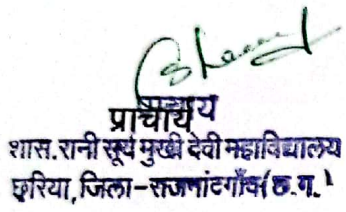 प्राचार्य
शास.रानी सूर्य मुखी देवी महाविद्यालय
छुरिया, जिला-राजनांदगाँव(छ.ग.)